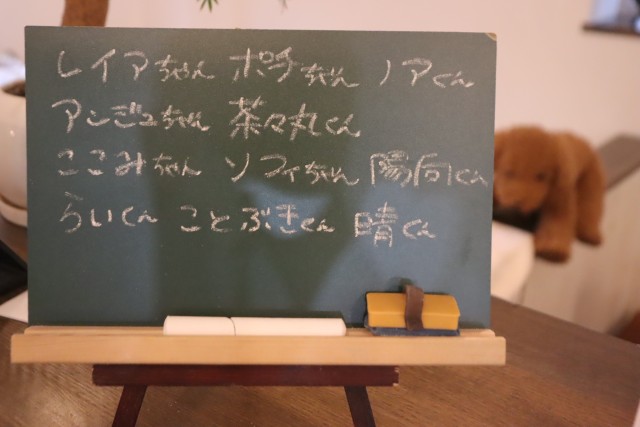 レイアちゃん ポチちゃん ノアくん
アンジュちゃん 茶々丸くん
ここみちゃん ソフィちゃん 陽向くん
らいくん ことぶきくん 晴くん